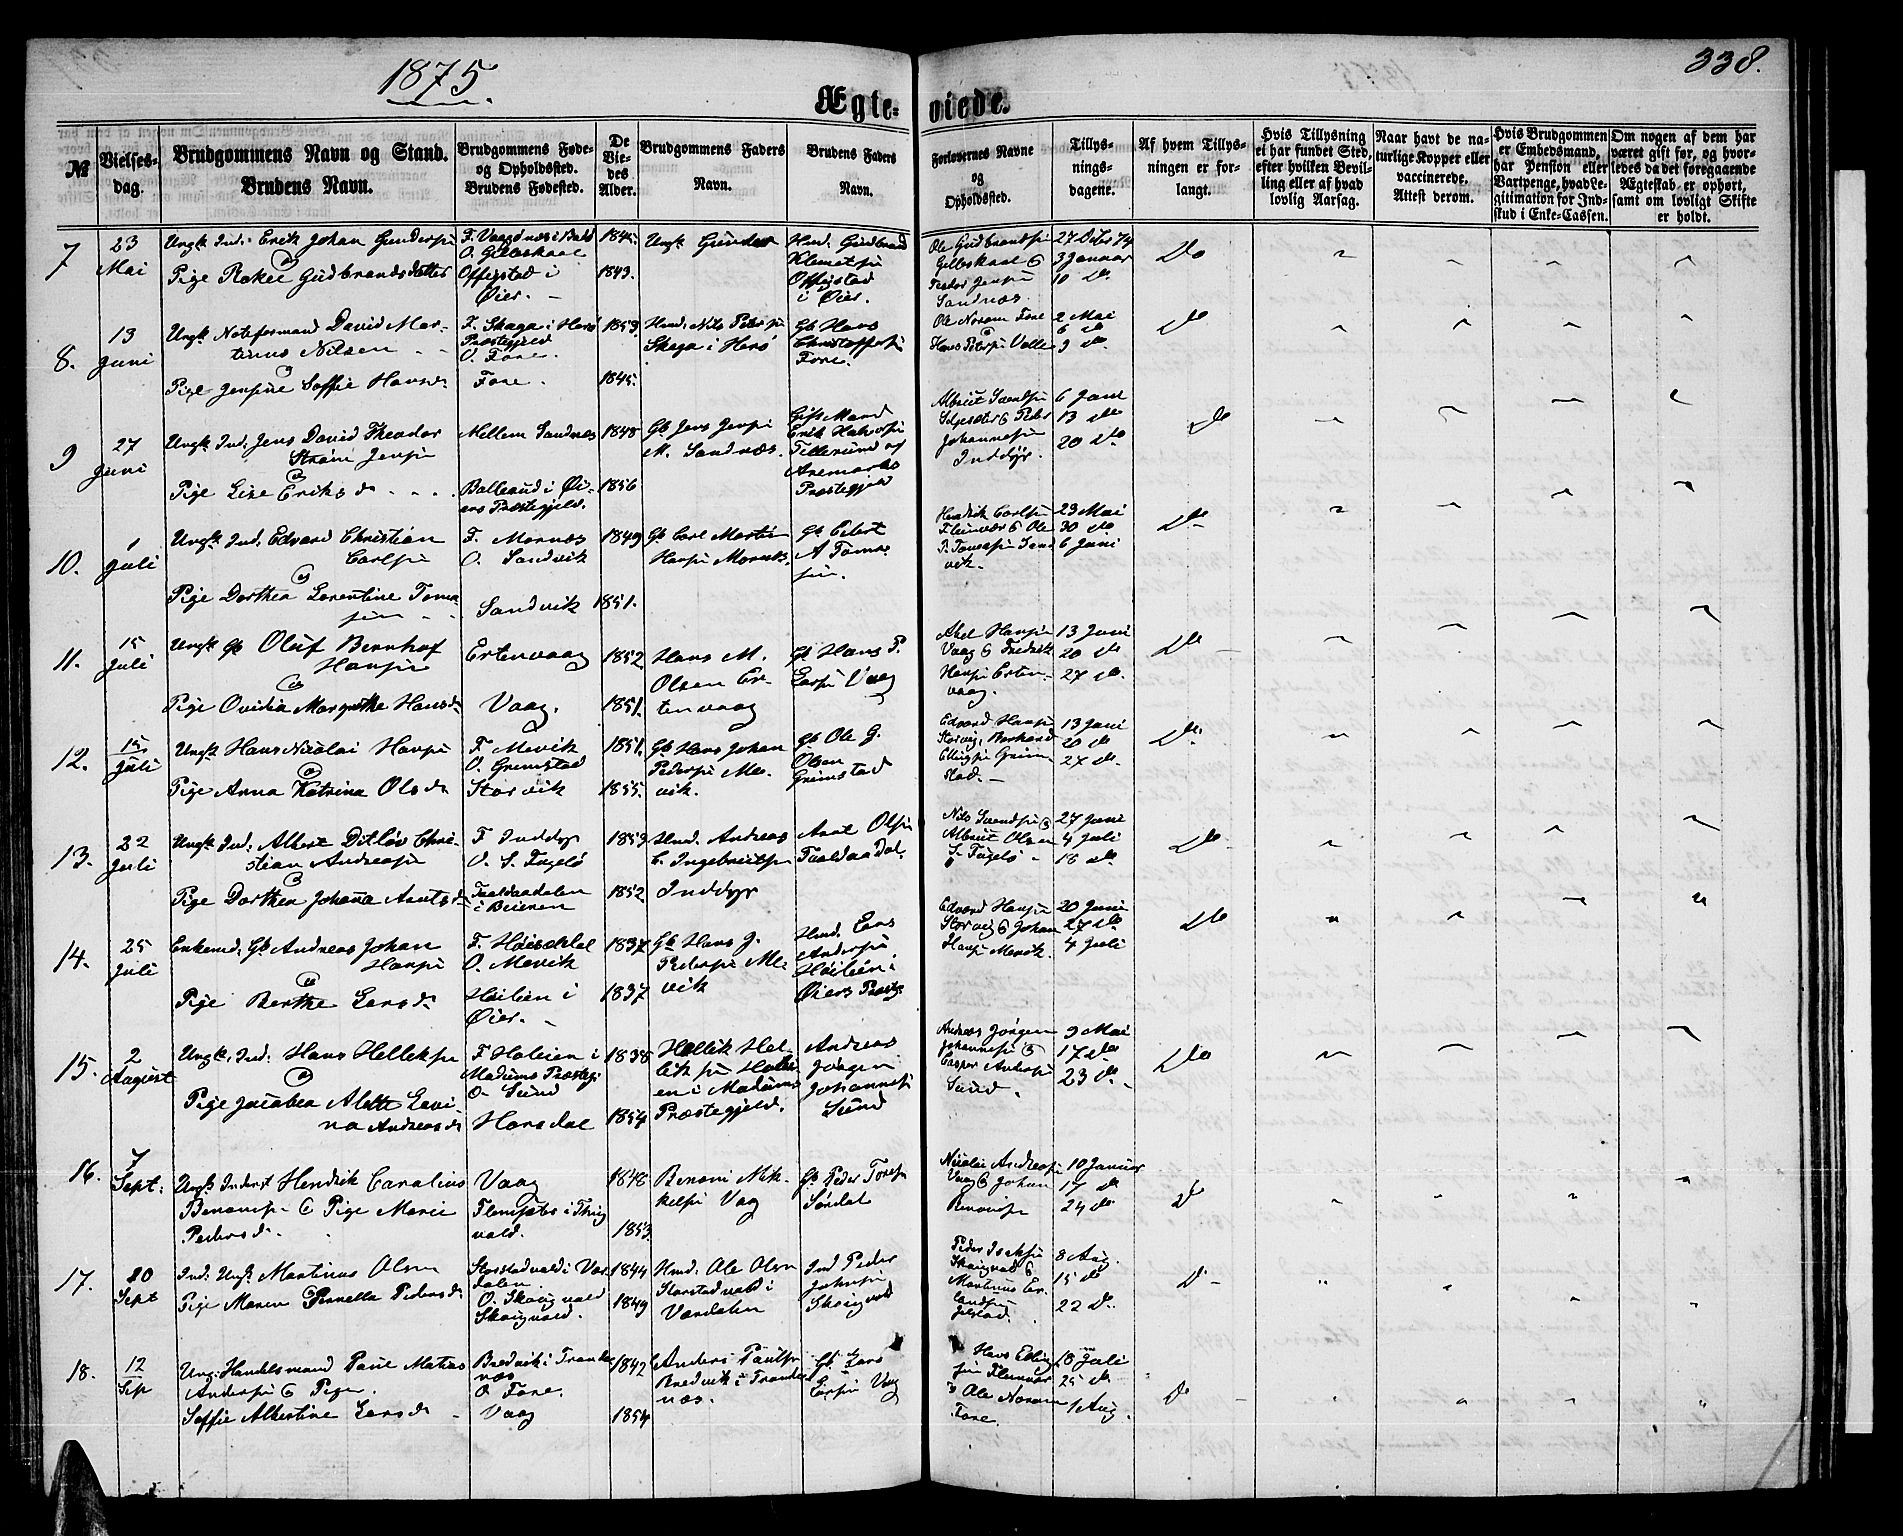 1875
338.
Ægte-
viede.
№
Vielses-
dag.
Brudgommens Navn og Stand.
Brudens Navn.
Brudgommens Føde-
og Opholdssted.
Brudens Fødested.
De
Vie-
des
Alder.
Brudgommens Faders
Navn.
Brudens Faders
Navn.
Forlovernes Navne
og
Opholdssted.
Tillys-
nings-
dagene.
Af hvem Tillys-
ningen er for-
langt.
Hvis Tillysning
ei har fundet Sted,
efter hvilken Bevil-
ling eller af hvad
lovlig Aarsag.
Naar havt de na-
turlige Kopper eller
vaccinerede.
Attest derom.
Hvis Brudgommen
er Embedsmand,
har Pension eller
Vartpenge, hvad Le-
gitimation for Ind-
skud i Enke-Cassen.
Om nogen af dem har
været gift før, og hvor-
ledes da det foregaaende
Ægteskab er ophørt,
samt om lovligt Skifte
er holdt.
7
23
Mai
Ungk. Ind: Erik Johan Gundersen
Pige Rakel Gudbrandsdatter
O. Gildeskaal
Offigstad i
Øier.
1845
1843.
Ungk Gunder
Hmd. Gudbrand
Klemetsen
Offigstad
i Øier.
Ole Gudbrandsen
Gildeskaal &
Peder Jensen
Sandnæs.
27 Debr 74
3 Januar
10 do
Do
8.
13
Juni
Ungk Noteformand David Mar-
tinus Nilsen
Pige Jensine Soffie Hansd.
F. Skaga i Herø
Præstegjeld
O. Fore.
Fore.
1853
1845.
Hmd: Nils Peder
Skaga i Herø
Gb Hans
Christoffersen
Fore.
Ole Norum Fore
Hans Peter Valle
2 Mai
6 do
9 do.
Do
9
27
Juni
Ungk Ind: Jens David Theodor
Strøm Jensen
Pige Lise Eriksd.
Mellem Sandnæs
Ballerud i Øi-
ers Præstegjeld.
1848
1856
Gb Jens Jensen
M. Sandnæs.
Gift Mand
Erik Halvorsen
Tillerud af
Aremarks
Præstegjeld
Albrigt Svendsen
Selsæter & Peder
Johannesen
Inddyr.
6 Juni
13 do
20 do
Do
10.
1
Juli
Ungk Ind. Edvard Christian
Carlsen
Pige Dorthea Lorentine Tomas-
sen
F. Mornæs
O. Sandvik
Sandvik
1849
1851.
Gb Carl Martin
Hansen Mornæs.
Gb Eilert
A Tomas-
sen.
Hendrik Carlsen
Fleinvær & Ole
P. Tomassen Sand
vik.
23 Mai
30 do
6 Juni
Do
11.
15
Juli
Ungk Gb Oluf Bernhof
Hansen
Pige Ovidia Margrethe Hansd.
Ertenvaag
Vaag.
1852
1851.
Hans M.
Olsen Er-
tenvaag
Gb Hans P.
Larsen Vaag
Axel Hansen
Vaag & Fredrik
Hansen Erten-
vaag.
13 Juni
20 do
27 do.
Do
12.
15
Juli
Ungk Hans Nicolai Hansen
Pige Anna Katrina Olsd.
F. Mevik
O. Grimstad
Storvik
1851.
1855.
Gb Hans Johan
Pedersen Me-
vik.
Gb Ole G.
Olsen
Grimstad
Edvard Hansen
Storvig,
Ellingsen Grim
stad.
13 Juni
20 do
27 do.
Do.
13.
22
Juli
Ungk Ind: Albert Ditløv Chri-
stian Andreassen
Pige Dorthea Johana Arntsd.
F Inddyr
O. S. Fugelø
i Beieren
1853
1852
Hmd. Andreas
C. Ingebrigtsen
Inddyr
Arnt Olsen
Nils Svendsen &
Albrigt Olsen
S. Fugelø
27 Juni
4 Juli
18 do.
Do
14.
25
Juli
Enkemd. Gb Andreas Johan
Hansen
Pige Berthe Larsd.
O. Mevik
Høilien i
Øier.
1837
1837
Gb Hans J.
Pedersen Me-
vik
Hmd. Lars
Andersen
Høilien i
Øiers Præstg.
Edvard Hansen
Storvig & Johan
Hansen Mevik.
20 Juni
27 do
4 Juli
Do
15.
2
August
Ungk. Ind: Hans Helleksen
Pige Jacobea Alette Levi-
na Andreasd.
F Haleien i
Modums Præsteg:
O. Sund
Horsdal
1838
1854
Hellik Hel-
liksen Halei-
en i Modums
Præstegjeld.
Andreas
Jørgen
Johannesen
Sund
Andreas Jørgen
Johannesen &
Casper Andersen
Sund.
9 Mai
17 do
23 do.
Do
16.
7
Sept:
Ungk Inderst Hendrik Caralius
Benonisen & Pige Marie
Pedersd.
Vaag
1848
1853.
Benoni Mik-
kelsen Vag
Gb Peder Toresen
Sørdal
Nicolai Andreassen
Vaag & Johan
Benonisen
10 Januar
17 do
24 do
Do
17.
20
Sept
Ind: Ungk Martinus Olsen
Pige Maren Pernella Pedersd.
Storstadvald i Vær
dalen
O. Skaugvold
Skaugvold.
1844
1849
Hmd: Ole Olsen
Storstadvald i
Værdalen
Ind Peder
Johnsen
Skaugvold
Peder Isaksen
Skaugvold &
Martinus Er-
landsen
8 Aug.
15 do
22 do.
Do
18.
12
Sep
Ung: Handelsmand Paul Matias
Andersen & Pige.
Soffie Albertine Larsd.
Bredvik i Trande
næs
O. Fore.
Vaag
1842
1854
Anders Paulsen
Bredvik i Trande
næs.
Gb. Lars
Larsen Vaag
Hans Elling
sen Fleinvær
& Ole Norum
Fore.
18 Juli
25 do
1 Aug.
Do